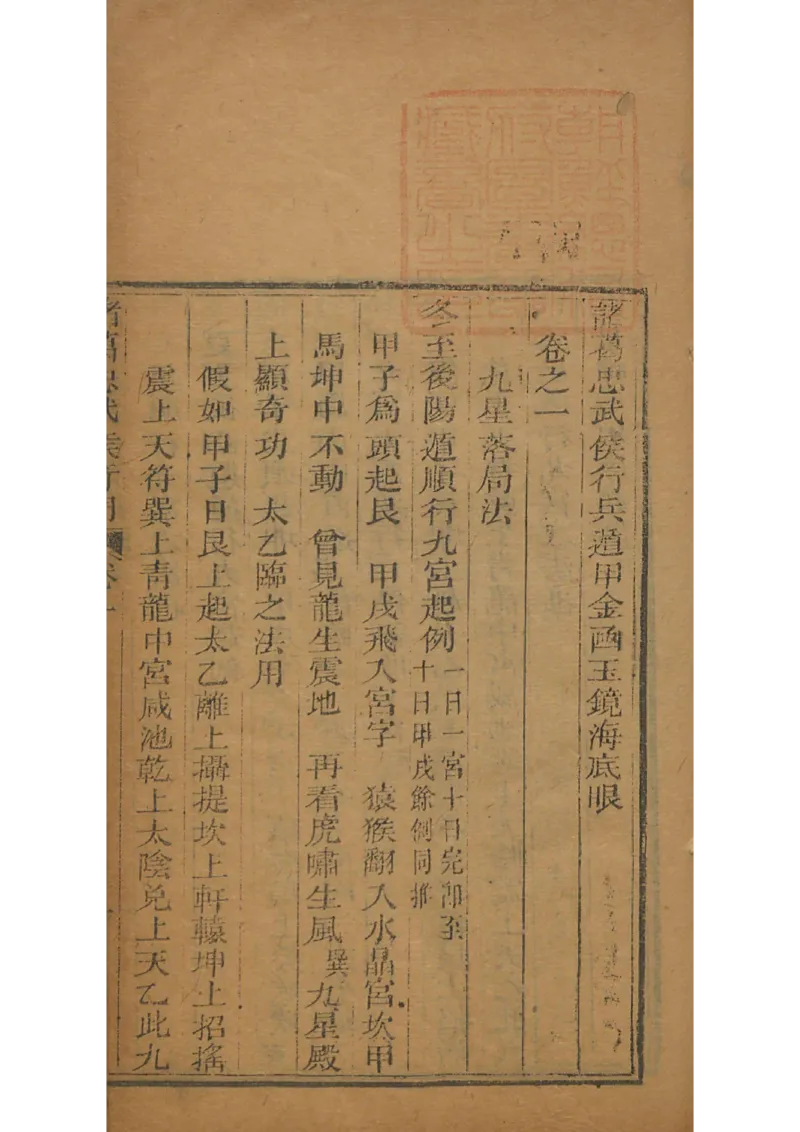 諸葛忠武侯行兵遁甲金函玉鏡海底眼
卷之一
九星落局法
冬至後陽遁順行九宮起例 一日一宮十日完卽至
十日甲戌餘倒同推
甲子爲頭起艮 甲戌飛入宮字 猿猴翻入水晶宮坎甲
馬坤中不動 曾見龍生震地 再看虎嘯生風巽九星殿
上顯奇功 太乙臨之法用
假如甲子日艮上起太乙離上攝提坎上軒轅坤上招搖
震上天符巽上靑龍中宮咸池乾上太陰兌上天乙此九
諸葛忠武侯行
卷一